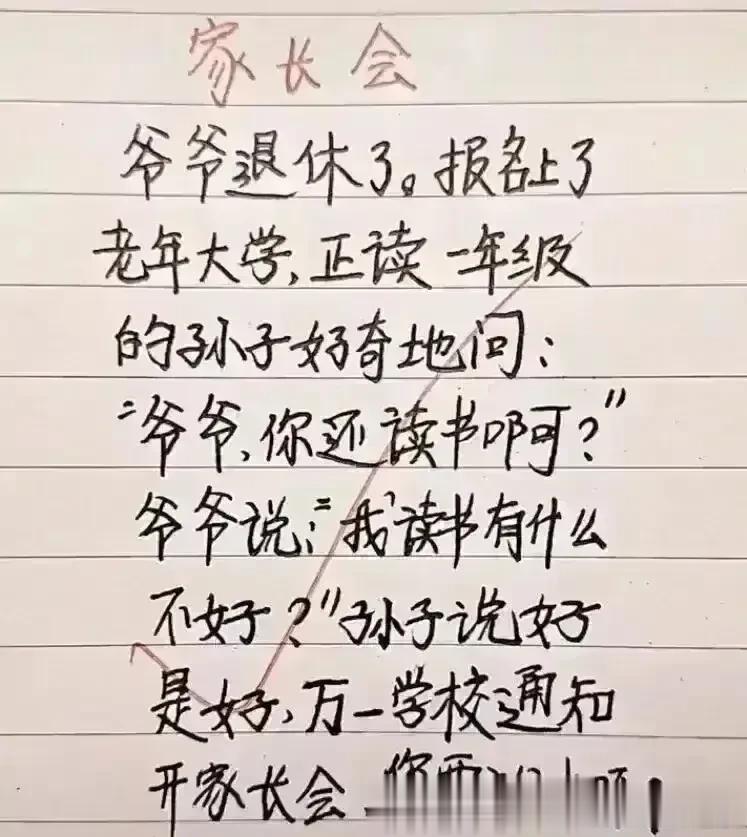 家长会
爷爷退休了。报名上了
老年大学,正读一年级
的孙子好奇地问:
“爷爷,你还读书啊?”
爷爷说:“我读书有什么
不好?”孙子说好
是好,万一学校通知
开家长会